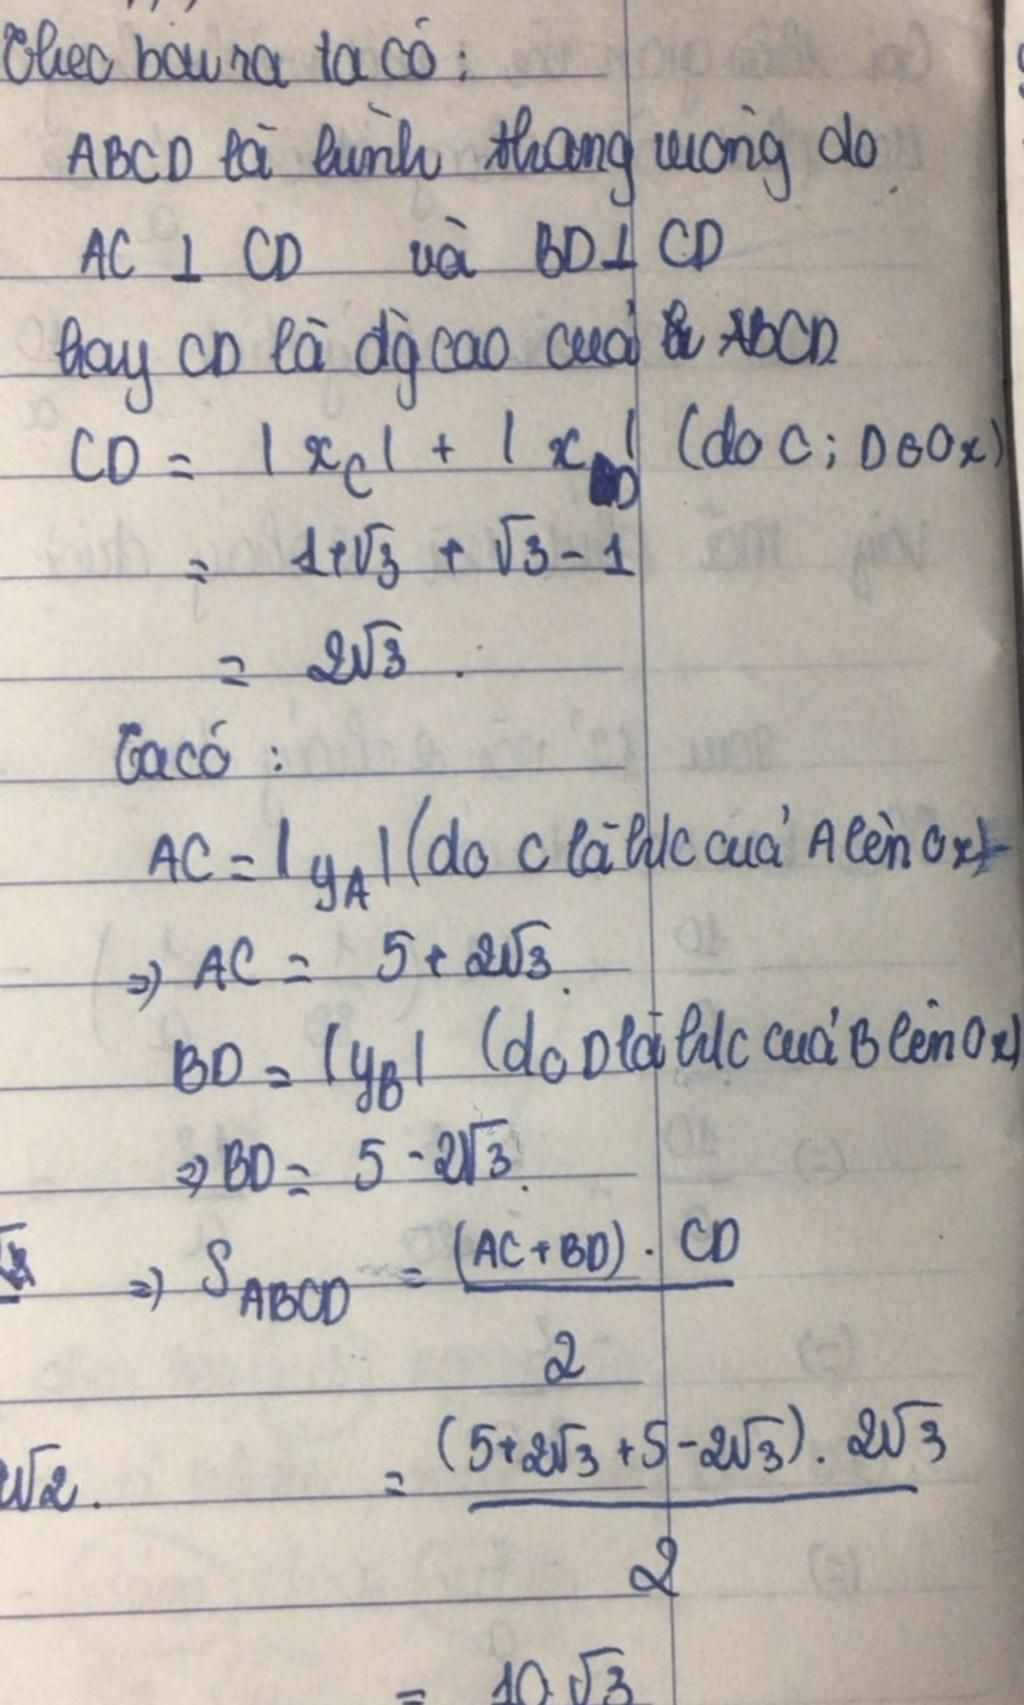 Theo bài ra ta có :
ABCD là hình thang vuông do
AC ⊥ CD và BD ⊥ CD
hay CD là độ cao của ABCD
CD = |x_C| + |x_D| (do C ; D ∈ Ox)
= 1+√3 + √3 - 1
= 2√3 .
Ta có :
AC = |y_A| (do C là h/c của A lên Ox)
=> AC = 5 + 2√3 .
BD = |y_B| (do D là h/c của B lên Ox)
=> BD = 5 - 2√3 .
=> S_ABCD = (AC + BD) . CD
2
√2 . = (5+2√3 +5 -2√3) . 2√3
2
= 10√3